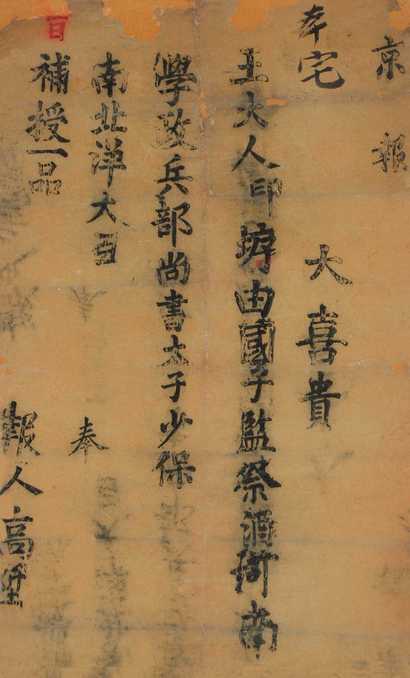 京報
本宅 大喜貴
王大人印垿由國子監祭酒河南
學政兵部尚書太子少保
南北洋大臣 奉
補授一品
報人高陞